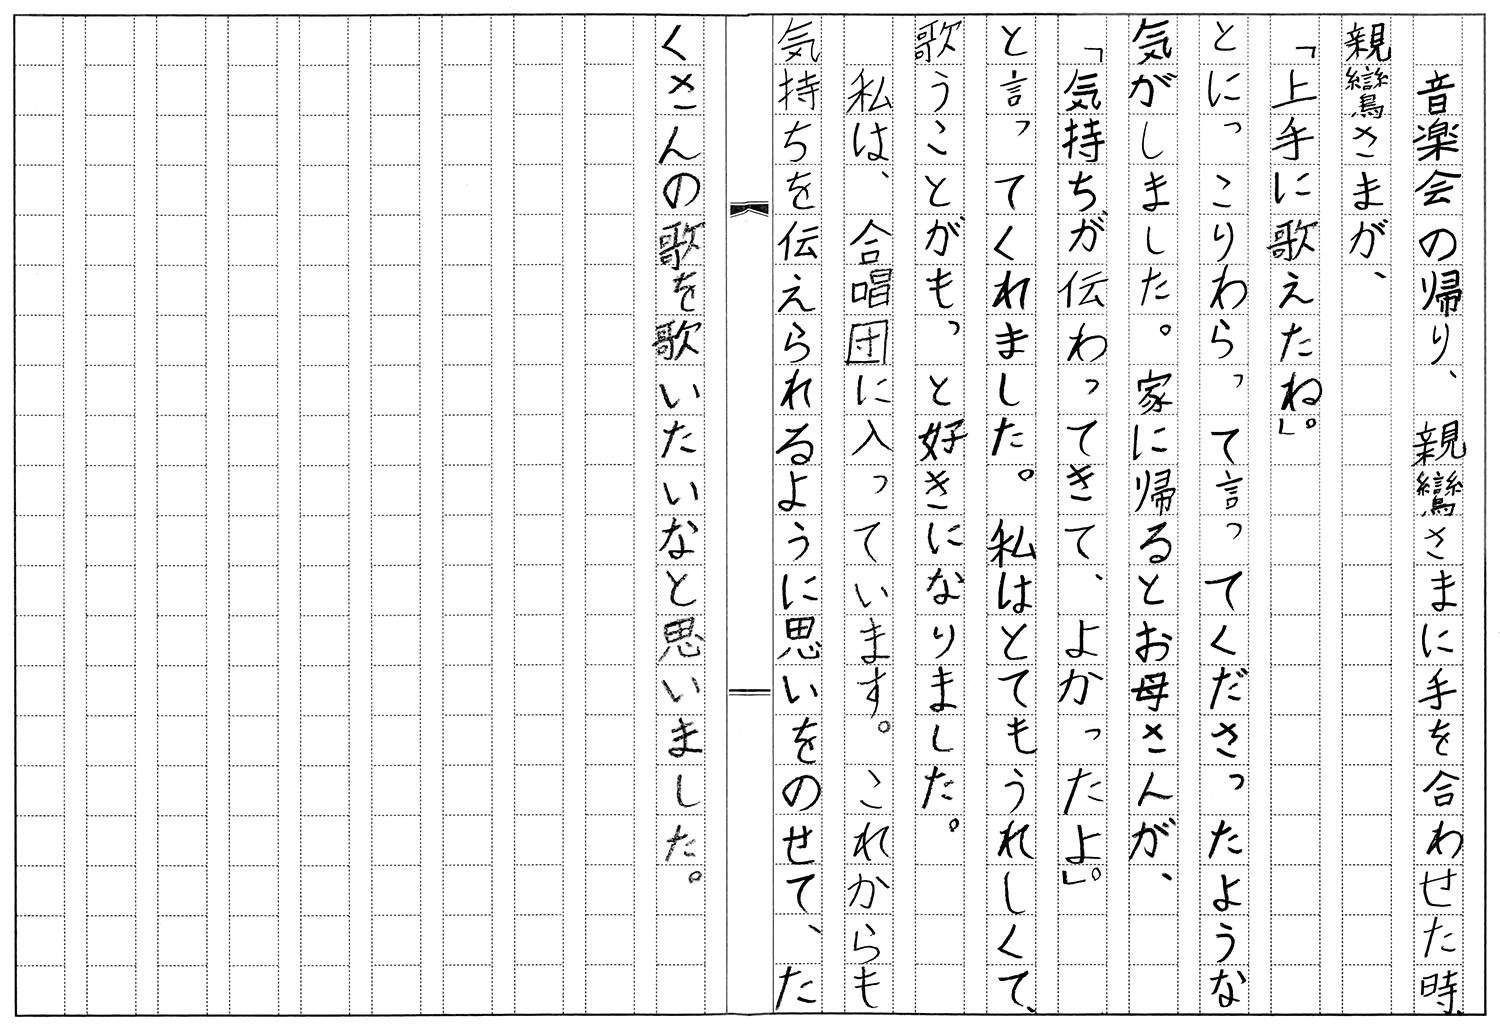 音楽会の帰り、親鸞さまに手を合わせた時、
親鸞さまが、
「上手に歌えたね。」
とにっこりわらって言ってくださったような
気がしました。家に帰るとお母さんが、
「気持ちが伝わってきて、よかったよ。」
と言ってくれました。私はとてもうれしくて、
歌うことがもっと好きになりました。
私は、合唱団に入っています。これからも
気持ちを伝えられるように思いをのせて、た
くさんの歌を歌いたいなと思いました。